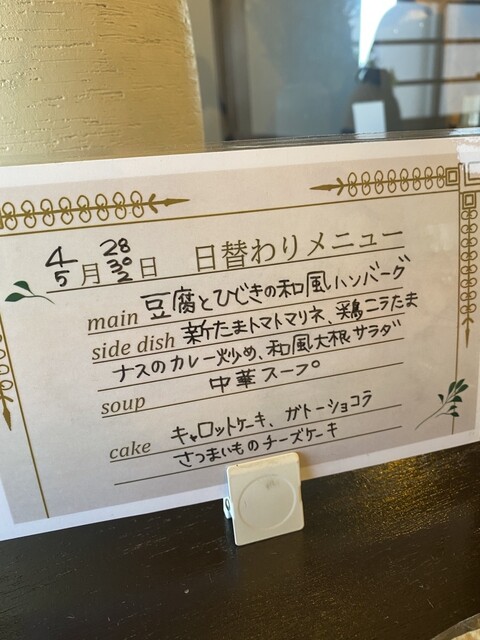 4 28
30
5月2日 日替わりメニュー
main 豆腐とひじきの和風ハンバーグ
side dish 新たまトマトマリネ、鶏ニラたま
ナスのカレー炒め、和風大根サラダ
soup 中華スープ
cake キャロットケーキ、ガトーショコラ
さつまいものチーズケーキ